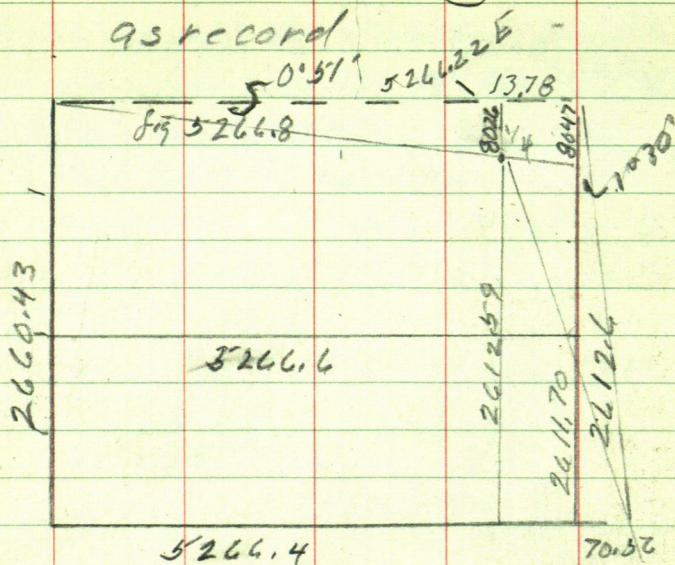 as record
0°51'
5266.22 E
13.78
5266.8
8026
1/4
8047
1°30'
2660.43
5266.6
2612.59
2611.70
2612.6
5266.4
70.56